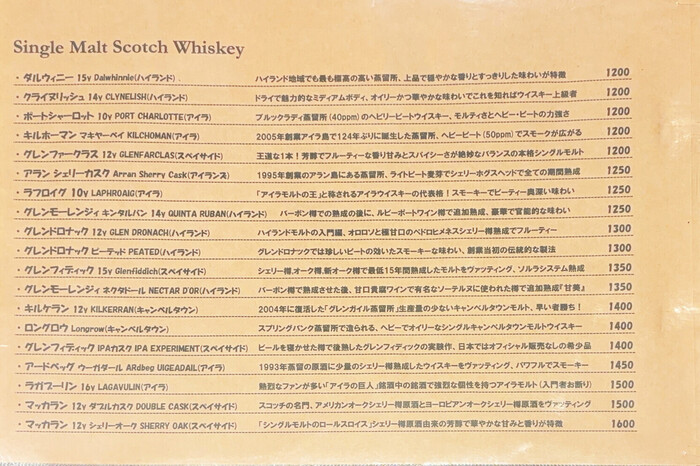 Single Malt Scotch Whiskey
・ダルウィニー 15y Dalwhinnie(ハイランド) ハイランド地域でも最も標高の高い蒸留所、上品で穏やかな香りとすっきりした味わいが特徴 1200
・クライヌリッシュ 14y CLYNELISH(ハイランド) ドライで魅力的なミディアムボディ、オイリーかつ華やかな味わいでこれを知ればウイスキー上級者 1200
・ポートシャーロット 10y PORT CHARLOTTE(アイラ) ブルックラディ蒸留所(40ppm)のヘビリーピートウイスキー、モルティさとヘビー・ピートの力強さ 1200
・キルホーマン マキヤーベイ KILCHOMAN(アイラ) 2005年創業アイラ島で124年ぶりに誕生した蒸留所、ヘビーピート(50ppm)でスモークが広がる 1200
・グレンファークラス 12y GLENFARCLAS(スペイサイド) 王道な1本!芳醇でフルーティーな香り甘みとスパイシーさが絶妙なバランスの本格シングルモルト 1200
・アラン シェリーカスク Arran Sherry Cask(アイランズ) 1995年創業のアラン島にある蒸留所、ライトピート麦芽でシェリーホグスヘッドで全ての期間熟成 1250
・ラフロイグ 10y LAPHROAIG(アイラ) 「アイラモルトの王」と称されるアイラウイスキーの代表格!スモーキーでピーティー奥深い味わい 1250
・グレンモーレンジィ キンタルバン 14y QUINTA RUBAN(ハイランド) バーボン樽での熟成の後に、ルビーポートワイン樽で追加熟成、豪華で官能的な味わい 1250
・グレンドロナック 12y GLEN DRONACH(ハイランド) ハイランドモルトの入門編、オロロソと極甘口のペドロヒメネスシェリー樽熟成でフルーティー 1300
・グレンドロナック ピーテッド PEATED(ハイランド) グレンドロナックでは珍しいピートの効いたスモーキーな味わい、創業当初の伝統的な製法 1300
・グレンフィディック 15y Glenfiddich(スペイサイド) シェリー樽.オーク樽.新オーク樽で最低15年間熟成したモルトをヴァッティング、ソルラシステム熟成 1350
・グレンモーレンジィ ネクタドール NECTAR D'OR(ハイランド) バーボン樽で熟成させた後、甘口貴腐ワインで有名なソーテルヌに使われた樽で追加熟成『甘美』 1350
・キルケラン 12y KILKERRAN(キャンベルタウン) 2004年に復活した「グレンガイル蒸留所」生産量の少ないキャンベルタウンモルト、早い者勝ち! 1400
・ロングロウ Longrow(キャンベルタウン) スプリングバンク蒸留所で造られる、ヘビーでオイリーなシングルキャンベルタウンモルトウイスキー 1400
・グレンフィディック IPAカスク IPA EXPERIMENT(スペイサイド) ビールを寝かせた樽で後熟したグレンフィディックの実験作、日本ではオフィシャル販売なしの希少品 1400
・アードベッグ ウーガダール ARdbeg UIGEADAIL(アイラ) 1993年蒸留の原酒に少量のシェリー樽熟成したウイスキーをヴァッティング、パワフルでスモーキー 1450
・ラガブーリン 16y LAGAVULIN(アイラ) 熱烈なファンが多い「アイラの巨人」銘酒中の銘酒で強烈な個性を持つアイラモルト(入門者お断り) 1500
・マッカラン 12y ダブルカスク DOUBLE CASK(スペイサイド) スコッチの名門、アメリカンオークシェリー樽原酒とヨーロピアンオークシェリー樽原酒をヴァッティング 1500
・マッカラン 12y シェリーオーク SHERRY OAK(スペイサイド) 「シングルモルトのロールスロイス」シェリー樽原酒由来の芳醇で華やかな甘みと香りが特徴 1600